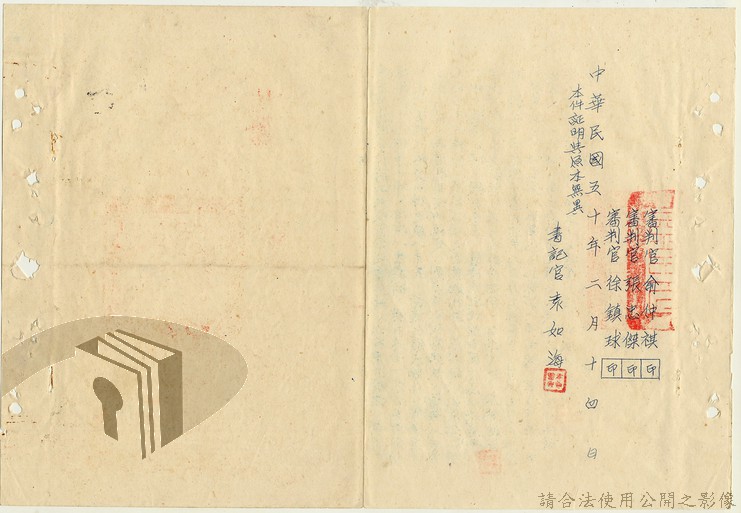 審判官俞仲祺印
審判官張忠傑印
審判官徐鎮球印
中華民國五十年二月十四日
本件証明與原本無異
書記官袁如海
請合法使用公開之影像